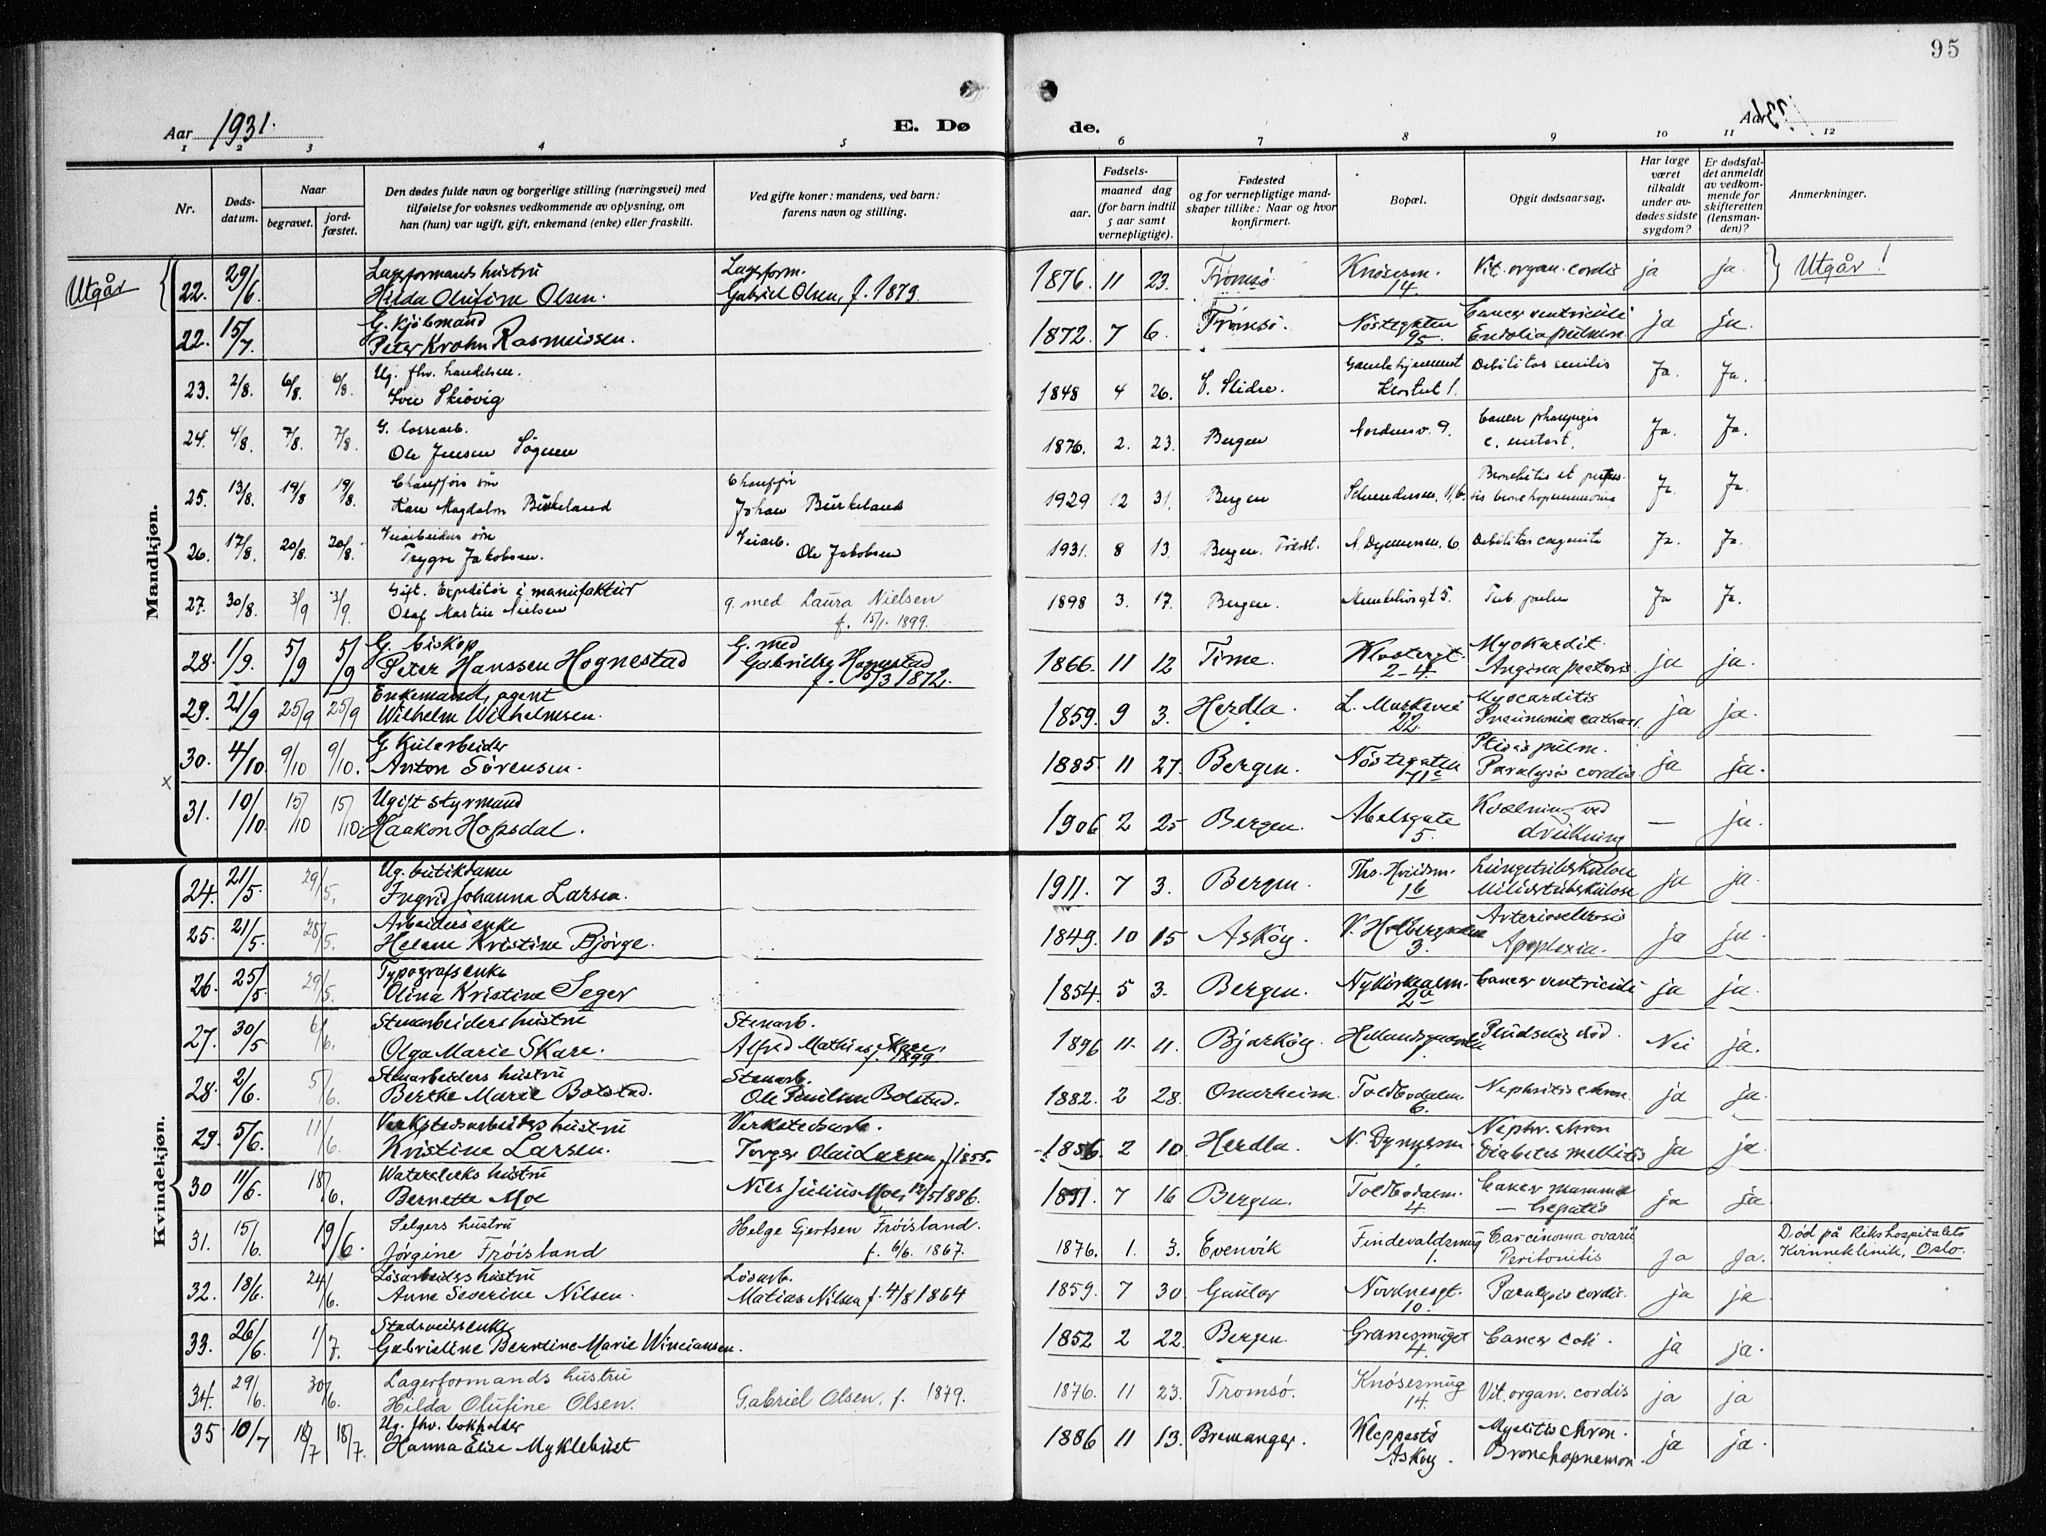 95
Aar 1931.
E. Dø de.
Aar 1931
1 2 3 4 5 6 7 8 9 10 11 12
Nr.
Døds-
datum.
Naar
begravet.
jord-
fæstet.
Den dødes fulde navn og borgerlige stilling (næringsvei) med
tilføielse for voksnes vedkommende av oplysning, om
han (hun) var ugift, gift, enkemand (enke) eller fraskilt.
Ved gifte koner: mandens, ved barn:
farens navn og stilling.
Fødsels-
aar.
maaned dag
(for barn indtil
5 aar samt
vernepligtige).
Fødested
og for vernepligtige mand-
skaper tillike: Naar og hvor
konfirmert.
Bopæl.
Opgit dødsaarsag.
Har læge
været
tilkaldt
under av-
dødes sidste
sygdom?
Er dødsfal-
det anmeldt
av vedkom-
mende for
skifteretten
(lensman-
den)?
Anmerkninger.
Mandkjøn.
Utgår
Lagerformands hustru Lagerform.
22. 29/6. Hilda Olufine Olsen. Gabriel Olsen, f. 1879. 1876 11 23. Tromsø Knösesm. 14. Vit. organ. cordis ja ja. Utgår!
G. Kjøbmand
22. 15/7. Peter Krohn Rasmussen. 1872. 7 6. Tromsø. Nöstegaten 95. Cancer ventriculi ja ja.
Ug. fhv. handelsm.
23. 2/8. 6/8. 6/8. Iver Skiøvig 1848 4 26. Slidre. Gamlehjemmet Klostret 1. Debilitas senilis Ja. Ja.
G. lossearb.
24. 4/8. 7/8. 7/8. Ole Jensen Søgnen 1876. 2. 23. Bergen Nordnesv. 9. Cancer pharyngis c. metast. Ja. Ja.
Chaufførs søn Chauffør
25. 13/8. 19/8 19/8. Kåre Magdalon Birkeland Johan Birkeland 1929 12 31. Bergen Bronchitis et bronchopneumonia Ja. Ja.
Veiarbeiders søn Veiarb.
26. 17/8. 20/8. 20/8. Trygve Jakobsen. Ole Jakobsen 1931. 8 13. Bergen. N. Dyvekesm. 6. Debilitas congenita Ja. Ja.
Gift. Expeditør i manufaktur
27. 30/8. 3/9 3/9. Olaf Martin Nielsen g. med Laura Nielsen f. 15/1. 1899. 1898 3. 17. Bergen. Munkebivsgt 5. Tub. pulm Ja Ja.
G. biskop G. med
28. 1/9. 5/9 5/9 Peter Hanssen Hognestad Gabrielle Hognestad f. 15/3 1872. 1866. 11 12 Time. Klostergt. 2-4. Myokardit. Angina pectoris ja ja.
Enkemand, agent
29. 21/9 25/9 25/9 Wilhelm Wilhelmsen. 1859. 9 3. Herdla. L. Murkevei 22. Myocarditis Pneumonia catharr. ja ja.
G. Kularbeider
30. 4/10. 9/10 9/10. Anton Sörensen. 1885. 11 27. Bergen. Nöstegaten 71c Ptisis pulm. Paralysis cordis ja ja.
x
Ugift styrmand
31. 10/10. 15/10 15/10. Haakon Hopsdal. 1906 2 25 Bergen. Abelsgate 5. Kvælning ved drukning — ja.
Kvindekjøn.
Ug. butikdame
24. 21/5. 29/5. Ingrid Johanna Larsen. 1911. 7 3. Bergen. Ths. Hviidsm. 16 Lungetuberkulose Miliærtuberkulose ja ja.
Arbeiders enke
25. 21/5. 28/5. Helene Kristine Bjørge. 1849. 10 15 Askøy. V. Holbergsalm 3. Arteriosclerosis Apoplexia. ja ja.
Typografs enke
26. 25/5. 29/5. Olina Kristine Seger 1854. 5 3. Bergen. Nykirkealm. 2a Cancer ventriculi ja ja.
Stenarbeiders hustru Stenarb.
27. 30/5 6/6. Olga Marie Skare. Alfred Mathias Skare, f. 1899. 1896 11 11. Bjarköy. Pludselig död. Nei ja.
Stenarbeiders hustru Stenarb.
28. 2/6. 5/6. Berthe Marie Bolstad. Ole Paulsen Bolstad. 1882. 2 28. Onarheim. Toldbodalm. 6. Nephritis chron. ja ja.
Verkstedsarbeiders hustru Verkstedsarb.
29. 5/6. 11/6. Kristine Larsen. Torger Olai Larsen, f 1855. 1856. 2 10. Herdla. Nephr. chron Diabetes mellitis ja ja.
Waterclerks hustru
30 11/6. 18/6. Bernette Moe Nils Julius Moe, 12/5 1886. 1891. 7 16 Bergen. Toldbodalm. 4 Cancer mamma — hepatis ja ja.
Selgers hustru
31. 15/6. 19/6. Jörgine Fröisland Helge Gjertsen Fröisland. f. 6/6. 1867. 1876. 1. 3. Evenvik Findevaldsmug 1. Carcinoma ovarii Peritonitis Ja Ja. Död på Rikshospitalets Kvinneklinik, Oslo.
Løsarbeiders hustru Løsarb.
32. 18/6. 24/6. Anne Severine Nilsen. Matias Nilsen f. 4/8 1864 1859. 7 30. Gaular Nordnesgt. 10. Paralysis cordis. ja ja
Stadsveiers enke
33. 26/6. 1/7. Gabrieline Berntine Marie Winciansen. 1852 2 22. Bergen Grønesmuget 4. Cancer coli. ja ja.
Lagerformands hustru
34. 29/6. 30/6. Hilda Olufine Olsen. Gabriel Olsen. f. 1879. 1876. 11 23. Tromsø. Knösesmug 14. Vit. organ. cordis ja ja
Ug. fhv. bokholder
35 10/7 18/7 18/7. Hanna Elise Myklebust 1886 11 13. Bremanger. Kleppestø Askøy. Myelitis chron. Bronchopnemon. ja ja.